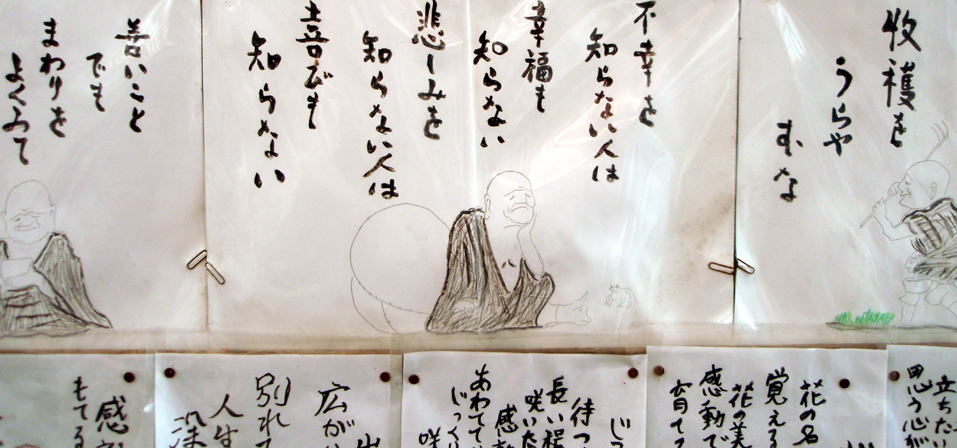 収穫を
うらや
むな
不幸を
知らない人は
幸福も
知らない
悲しみを
知らない人は
喜びも
知らない
善いこと
でも
まわりを
よくみて
立ちた
思う心が
花の名
覚える
花の美
感動で
育てて
じっ
待つ
長い程
咲いた
感
あわてて
じっく
咲
広が
別れて
人生
深
感
もてる